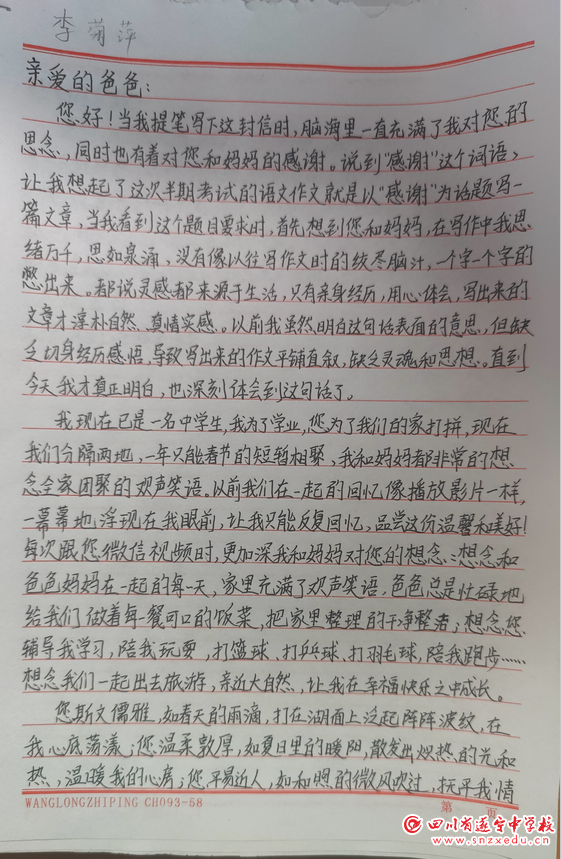 李菊萍
亲爱的爸爸：
您好！当我提笔写下这封信时，脑海里一直充满了我对您的
思念，同时也有着对您和妈妈的感谢。说到"感谢"这个词语，
让我想起了这次半期考试的语文作文就是以"感谢"为话题写一
篇文章，当我看到这个题目要求时，首先想到您和妈妈，在写作中我思
绪万千，思如泉涌，没有像以往写作文时的绞尽脑汁，一个字一个字的
憋出来。都说灵感都来源于生活，只有亲身经历，用心体会，写出来的
文章才淳朴自然、真情实感。以前我虽然明白这句话表面的意思，但缺
乏切身经历感悟，导致写出来的作文平铺直叙，缺乏灵魂和思想。直到
今天我才真正明白，也深刻体会到这句话了。
我现在已是一名中学生，我为了学业，您为了我们的家打拼，现在
我们分隔两地，一年只能春节的短暂相聚，我和妈妈都非常的想
念全家团聚的欢声笑语。以前我们在一起的回忆像播放影片一样，
一幕幕地浮现在我眼前，让我只能反复回忆，品尝这份温馨和美好！
每次跟您微信视频时，更加深我和妈妈对您的想念：想念和
爸爸妈妈在一起的每一天，家里充满了欢声笑语，爸爸总是忙碌地
给我们做着每一餐可口的饭菜，把家里整理的干净整洁；想念您
辅导我学习，陪我玩耍，打篮球、打乒球、打羽毛球，陪我跑步……
想念我们一起出去旅游，亲近大自然，让我在幸福快乐之中成长。
您斯文儒雅，如春天的雨滴，打在湖面上泛起阵阵波纹，在
我心底荡漾；您温柔敦厚，如夏日里的暖阳，散发出炽热的光和
热，温暖我的心房；您平易近人，如和煦的微风吹过，抚平我情
WANGLONGZHIPING CH093-58
第 页
四川省遂宁中学校
www.snzxedu.cn